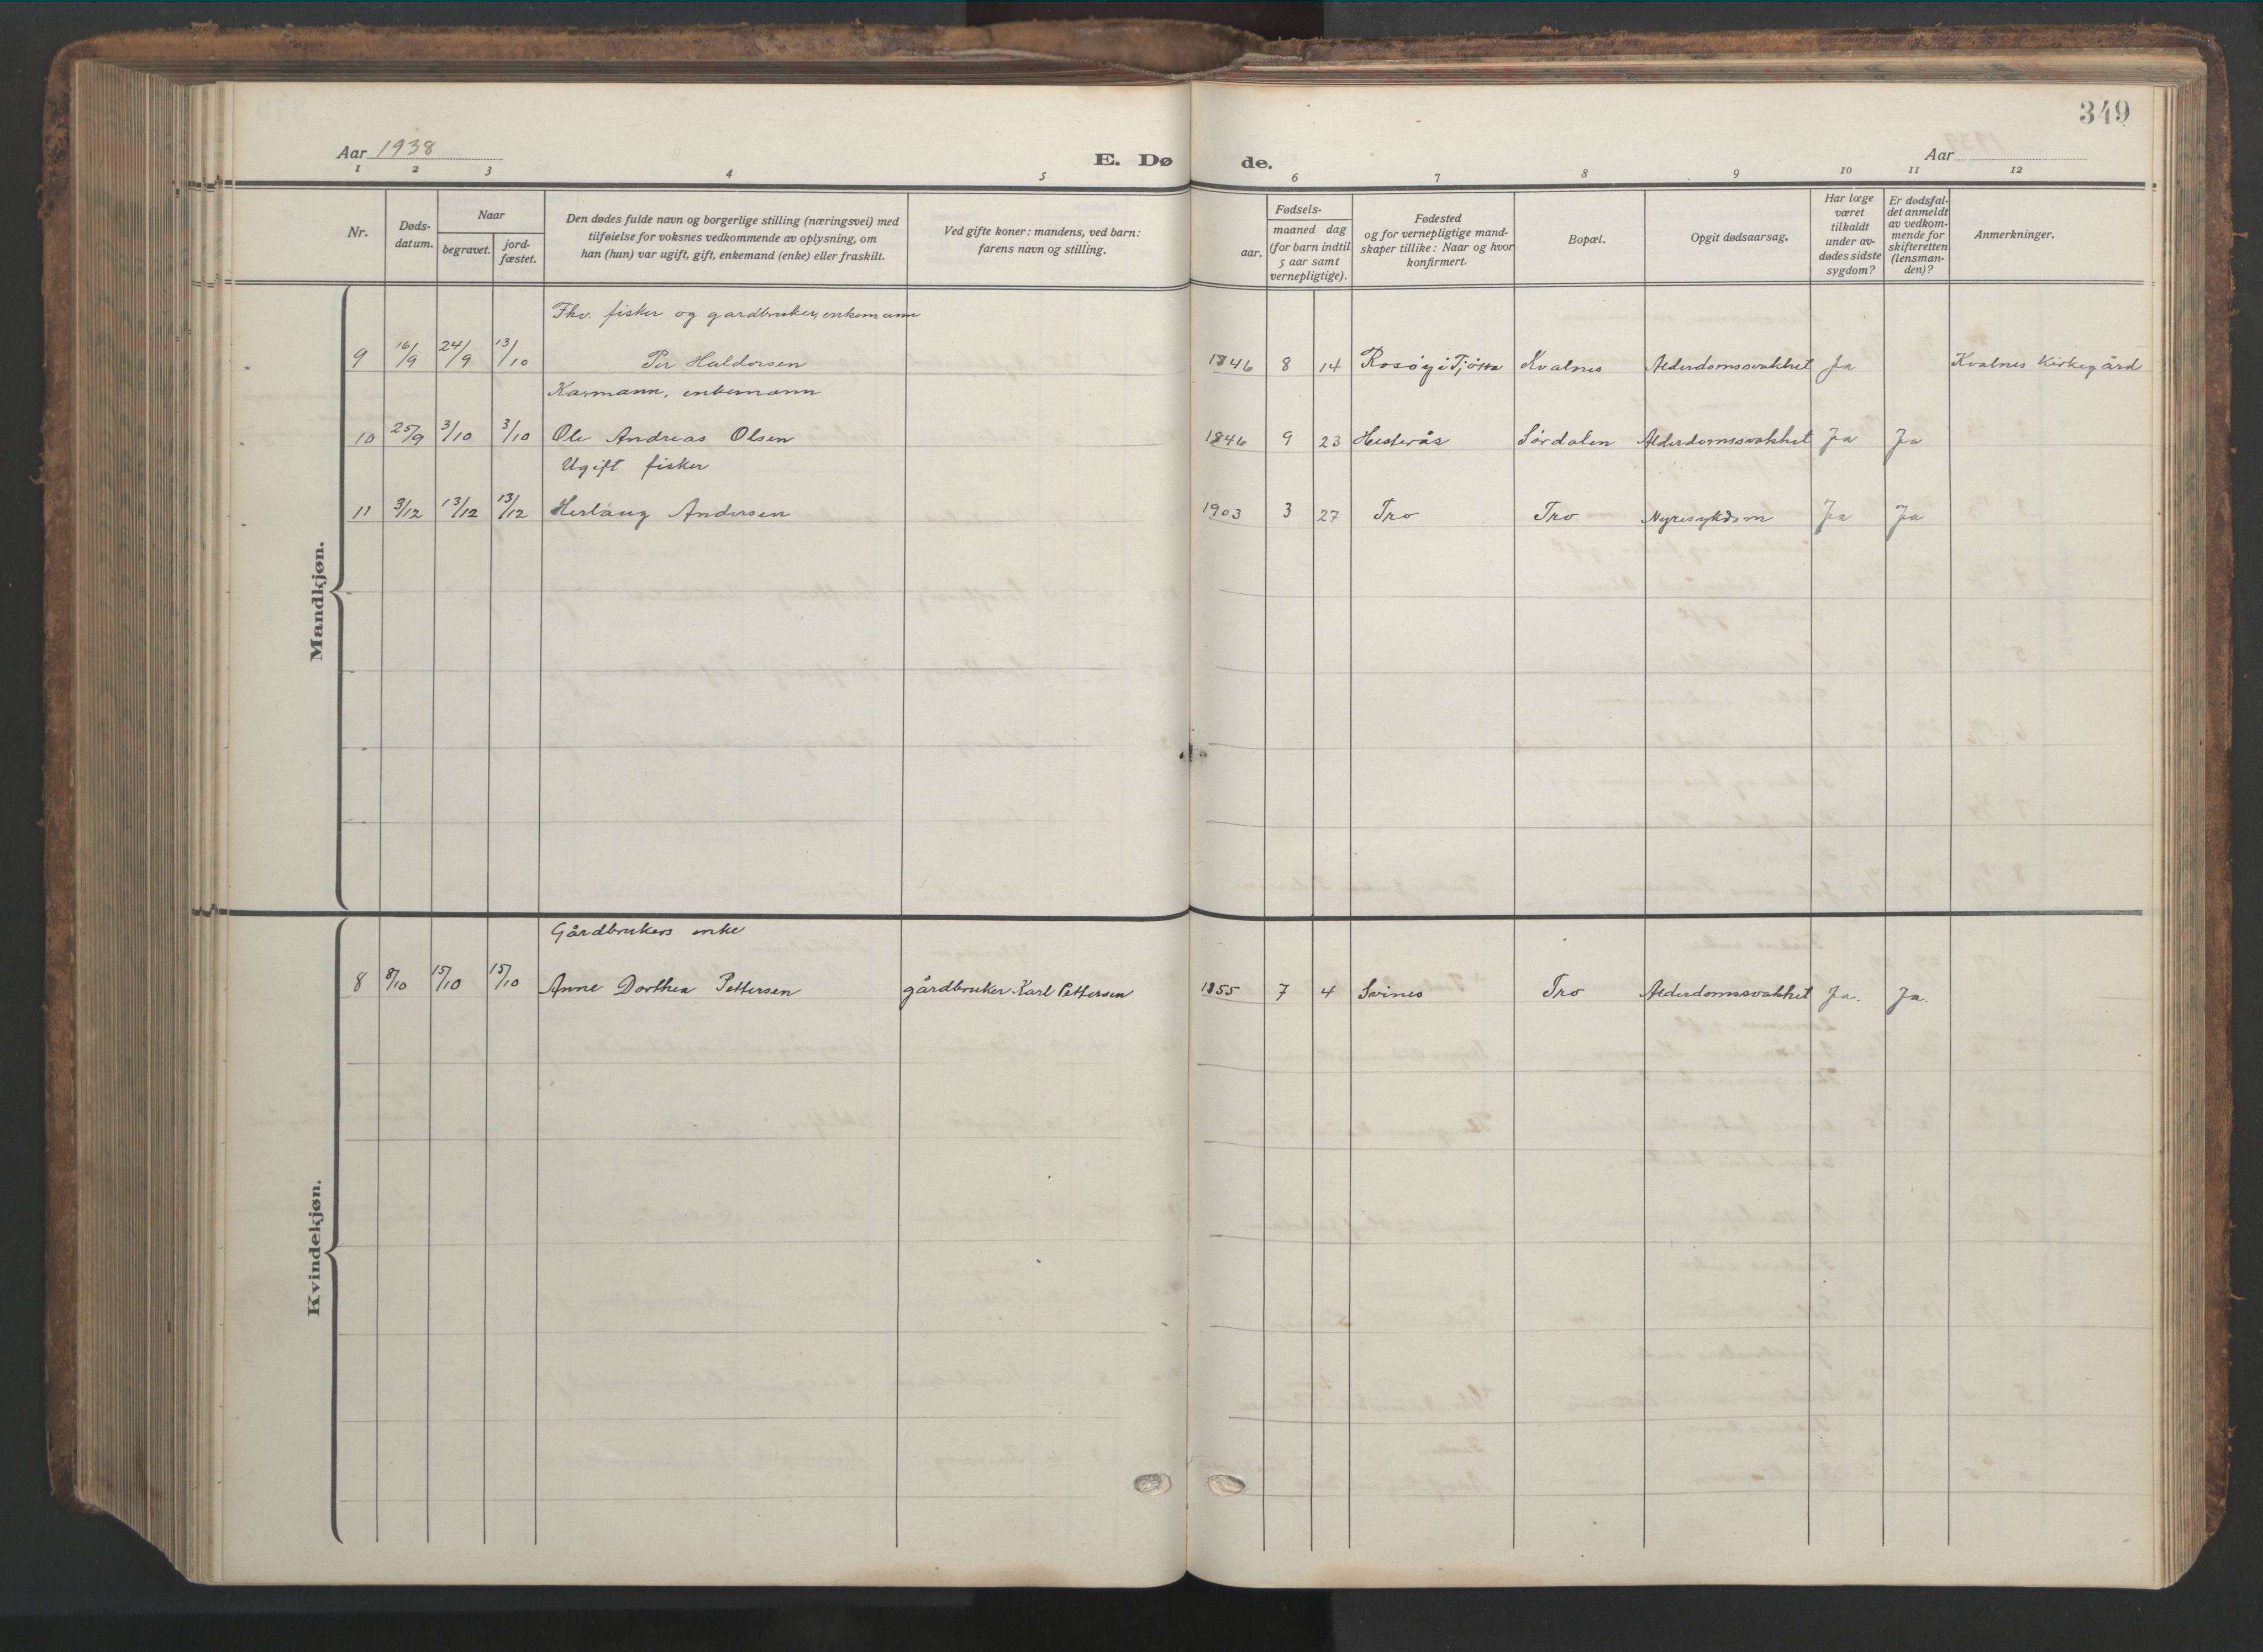 349
Aar 1938
E. Dø de.
Aar
1 2 3 4 5 6 7 8 9 10 11 12
Nr.
Døds-
datum.
Naar
begravet.
jord-
fæstet.
Den dødes fulde navn og borgerlige stilling (næringsvei) med
tilføielse for voksnes vedkommende av oplysning, om
han (hun) var ugift, gift, enkemand (enke) eller fraskilt.
Ved gifte koner: mandens, ved barn:
farens navn og stilling.
Fødsels-
aar.
maaned dag
(for barn indtil
5 aar samt
vernepligtige).
Fødested
og for vernepligtige mand-
skaper tillike: Naar og hvor
konfirmert.
Bopæl.
Opgit dødsaarsag.
Har læge
været
tilkaldt
under av-
dødes sidste
sygdom?
Er dødsfal-
det anmeldt
av vedkom-
mende for
skifteretten
(lensman-
den)?
Anmerkninger.
Mandkjøn.
Fhv. fisker og gardbruker, enkemann
9 16/9 24/9 13/10 Per Haldorsen 1846 8 14 Rosøy i Tjøtta Kvalnes Alderdomssvakhet Ja Kvalnes Kirkegård
Kaxmann, enkemann
10 25/9 3/10 3/10 Ole Andreas Olsen 1846 9 23 Hesterås Sørdalen Alderdomssvakhet Ja Ja
Ugift fisker
11 3/12 13/12 13/12 Herlaug Andersen 1903 3 27 Tro Tro Nyresykdom Ja Ja
Kvindekjøn.
Gårdbrukers enke
8 8/10 15/10 15/10 Anne Dorthea Pettersen gårdbruker Karl Pettersen 1855 7 4 Svines Tro Alderdomssvakhet Ja. Ja.